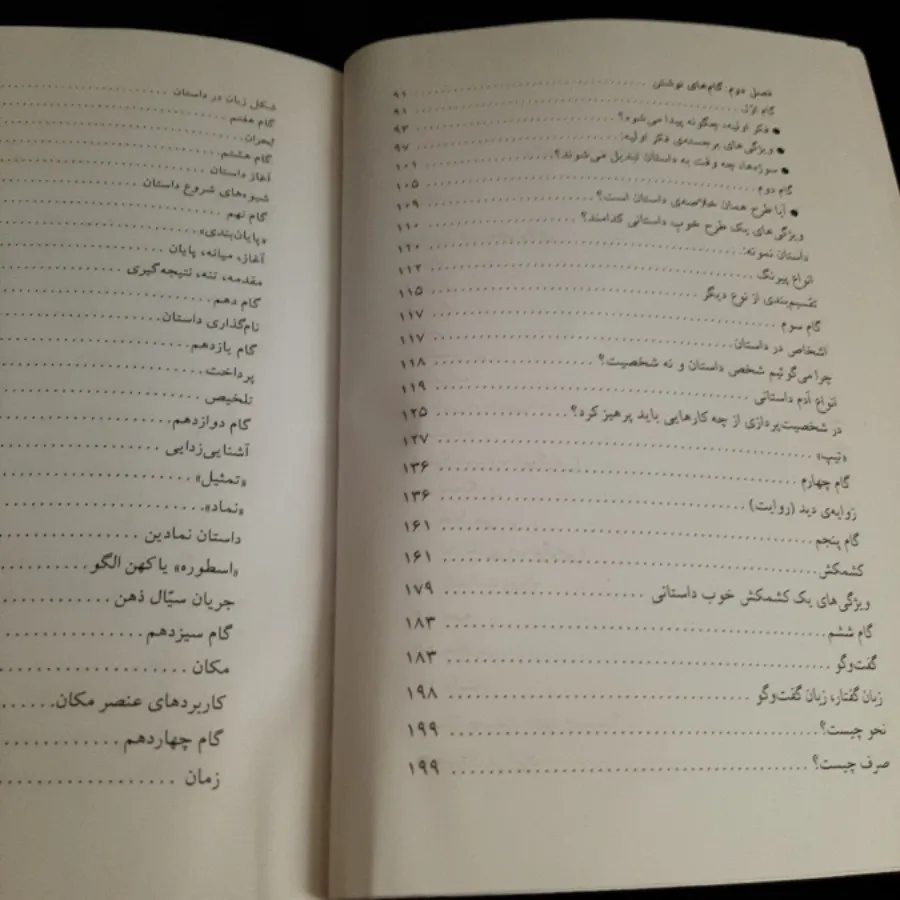 فصل دوم: گام‌های نوشتن ۹۱
گام اول ۹۱
● فکر اولیه، چگونه پیدا می‌شود؟ ۹۳
● ویژگی‌های برجسته‌ی فکر اولیه: ۹۷
● سوژه‌ها، چه وقت به داستان تبدیل می‌شوند؟ ۱۰۱
گام دوم ۱۰۵
● آیا طرح همان خلاصه‌ی داستان است؟ ۱۰۹
ویژگی‌های یک طرح خوب داستانی کدامند؟ ۱۱۰
داستان نمونه:
انواع پیرنگ ۱۱۲
تقسیم‌بندی از نوع دیگر ۱۱۵
گام سوم ۱۱۷
اشخاص در داستان ۱۱۷
چرا می‌گوئیم شخص داستان و نه شخصیت؟ ۱۱۸
انواع آدم داستانی ۱۱۹
در شخصیت‌پردازی از چه کارهایی باید پرهیز کرد؟ ۱۲۵
«تیپ» ۱۲۷
گام چهارم ۱۳۶
زوایه‌ی دید (روایت) ۱۳۶
گام پنجم ۱۶۱
کشمکش ۱۶۱
ویژگی‌های یک کشمکش خوب داستانی ۱۷۹
گام ششم ۱۸۳
گفت‌وگو ۱۸۳
زبان گفتار، زبان گفت‌وگو ۱۹۸
نحو چیست؟ ۱۹۹
صرف چیست؟ ۱۹۹
شکل زبان در داستان
گام هفتم
بحران
گام هشتم
آغاز داستان
شیوه‌های شروع داستان
گام نهم
«پایان‌بندی»
آغاز، میانه، پایان
مقدمه، تنه، نتیجه‌گیری
گام دهم
نام‌گذاری داستان
گام یازدهم
پرداخت
تلخیص
گام دوازدهم
آشنایی‌زدایی
«تمثیل»
«نماد»
داستان نمادین
«اسطوره» یا کهن الگو
جریان سیّال ذهن
گام سیزدهم
مکان
کاربردهای عنصر مکان
گام چهاردهم
زمان